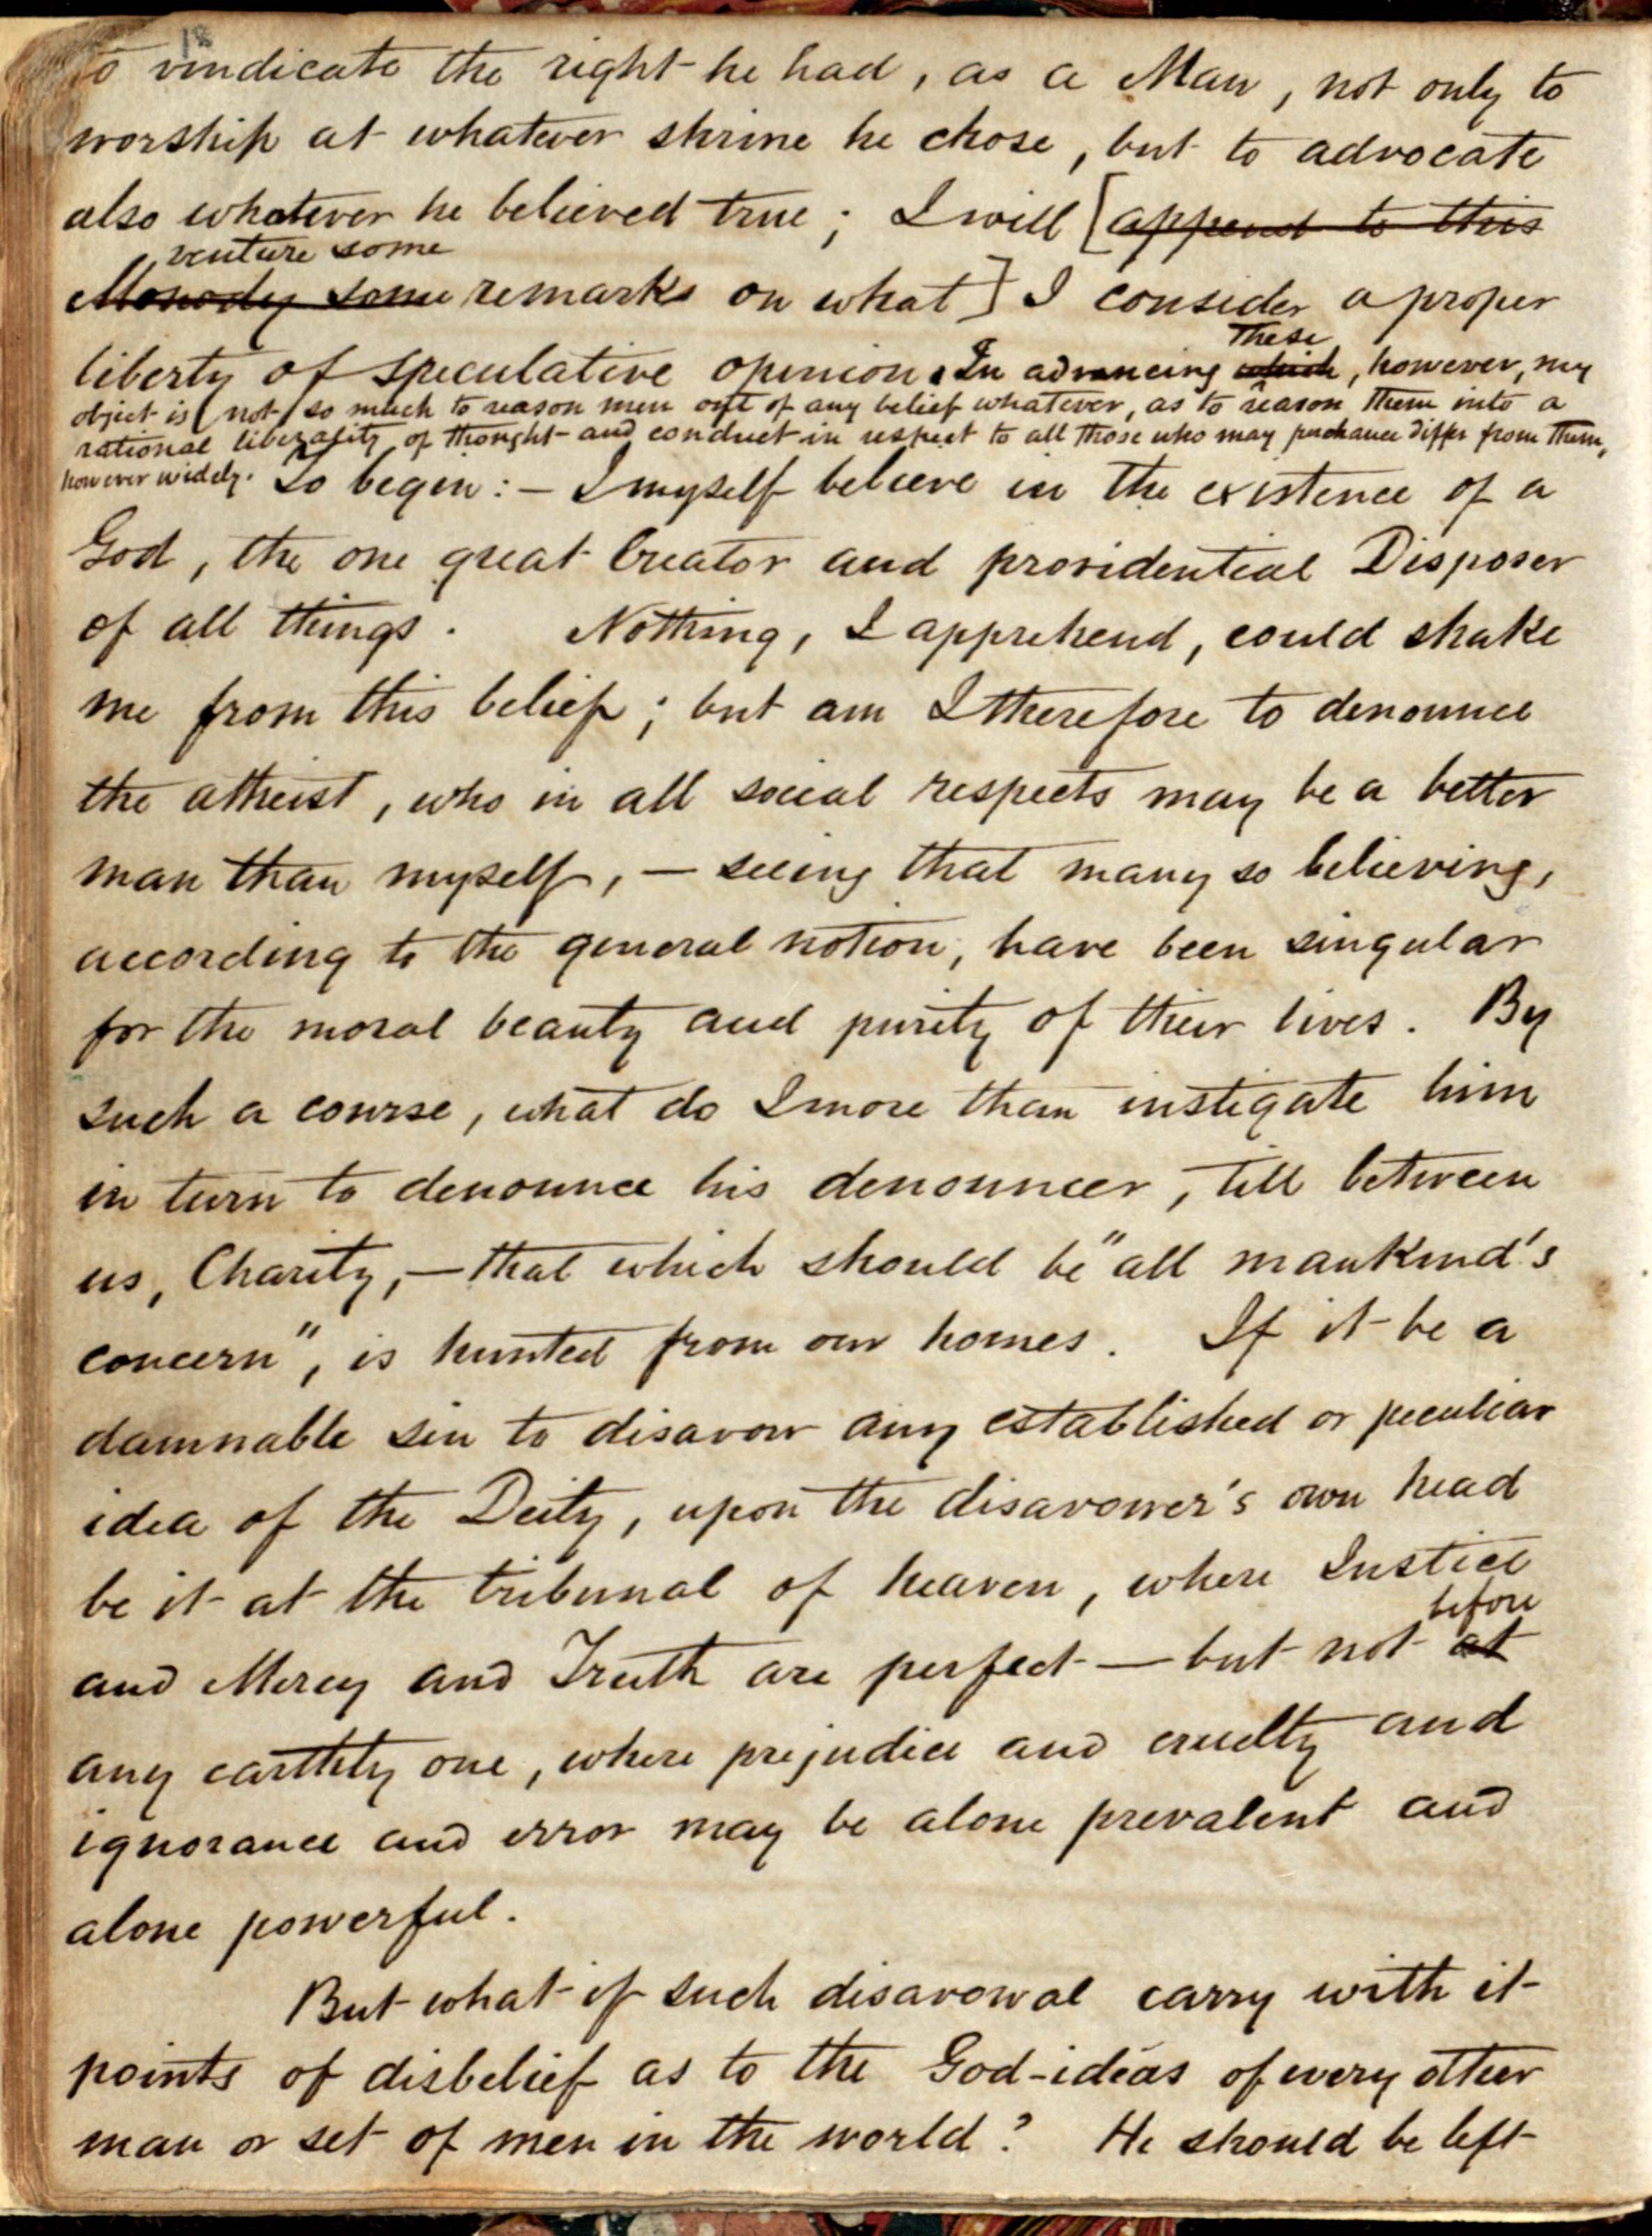 18
to vindicate the right he had, as a Man, not only to
worship at whatever shrine he chose, but to advocate
also whatever he believed true; I will [append to this
venture some
Monody some remarks on what] I consider a proper
These
liberty of speculative opinion. In advancing which, however, my
object is (not) so much to reason men out of any belief whatever, as to reason them into a
rational liberality of thought and conduct in respect to all those who may perchance differ from them,
however widely. To begin:— I myself believe in the existence of a
God, the one great Creator and providential Disposer
of all things. Nothing, I apprehend, could shake
me from this belief; but am I therefore to denounce
the atheist, who in all social respects may be a better
man than myself,— seeing that many so believing,
according to the general notion, have been singular
for the moral beauty and purity of their lives. By
such a course, what do I more than instigate him
in turn to denounce his denouncer, till between
us, Charity,—that which should be "all mankind's
concern", is hunted from our homes. If it be a
damnable sin to disavow any established or peculiar
idea of the Deity, upon the disavower's own head
be it at the tribunal of heaven, where Justice
before
and Mercy and Truth are perfect—but not at
any earthly one, where prejudice and cruelty and
ignorance and error may be alone prevalent and
alone powerful.
But what if such disavowal carry with it
points of disbelief as to the God-ideas of every other
man or set of men in the world? He should be left